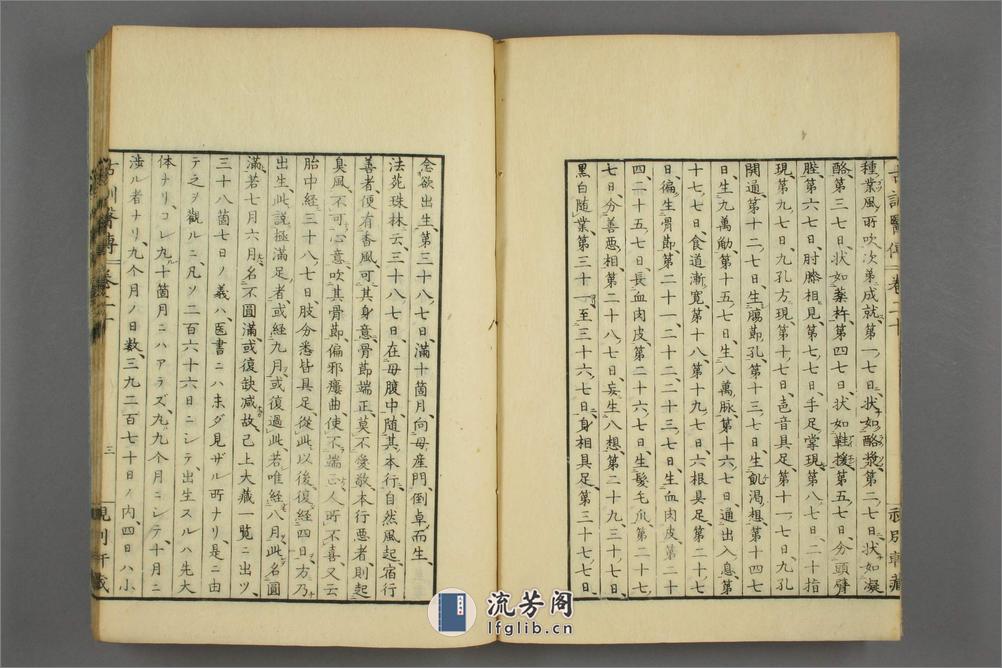 種業風所吹次第成就第一七日状如酪漿第二七日状如凝
酪第三七日状如薬杵第四七日状如鞋援第五七日分頭臂
䏶第六七日肘膝相見第七七日手足掌現第八七日二十指
現第九七日九孔方現第十七日音具足第十一七日九孔
開通第十二七日生腸節孔第十三七日生飢渇想第十四七
日生九萬第十五七日生八萬脉第十六七日通出入息第
十七七日食道漸寛第十八第十九七日六根具足第二十七
日徧生骨節第二十一二十二二十三七日生血肉皮第二十
四二十五七日長血肉皮第二十六七日生髪毛爪第二十
七日分善悪相第二十八七日妄生八想第二十九三十七
黒白随業第三十一至三十六七日身相具足第三十七七日
念欲出生第三十八七日滿十箇月向母産門倒卓而生
法苑珠林云三十八七日在母腹中随其本行自然風起宿行
善者便有香風可其身意骨節端正莫不愛敬本行悪者則起
臭風不可心意吹其骨節偏邪瘻曲使不端正人所不喜又云
胎中經三十八七日肢分悉皆具足從此以後復經四日方乃
出生此説極滿足者或經九月或復過此若唯經八月此名圓
滿若七月六月名不圓滿或復缺减故已上大藏一覧ニ出ツ
三十八箇七日ノ義ハ医書ニハ未ダ見ザル所ナリ是ニ由
テ之ヲ觀ルニ凡ソ二百六十六日ニシテ出生スルハ先大
体ナリコレ九十箇月ニハアラズ九九个月ニシテ十月ニ
渉ル者ナリ九个月ノ日数三九二百七十日ノ内四日ハ小
古訓醫傳 卷二十
三
流芳阁
lfglib.cn